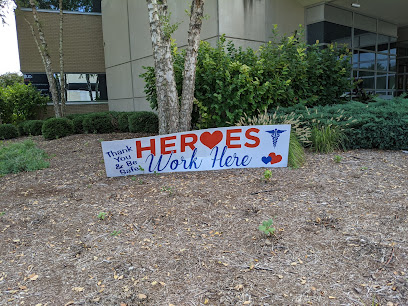 Thank
You
& Be
Safe!
HEROES
Work Here